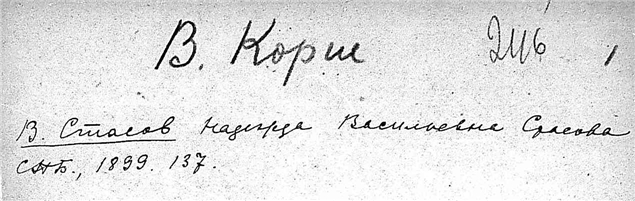 В. Корш 246
В. Стасов Надежда Васильевна Стасова
СПБ., 1899. 137.